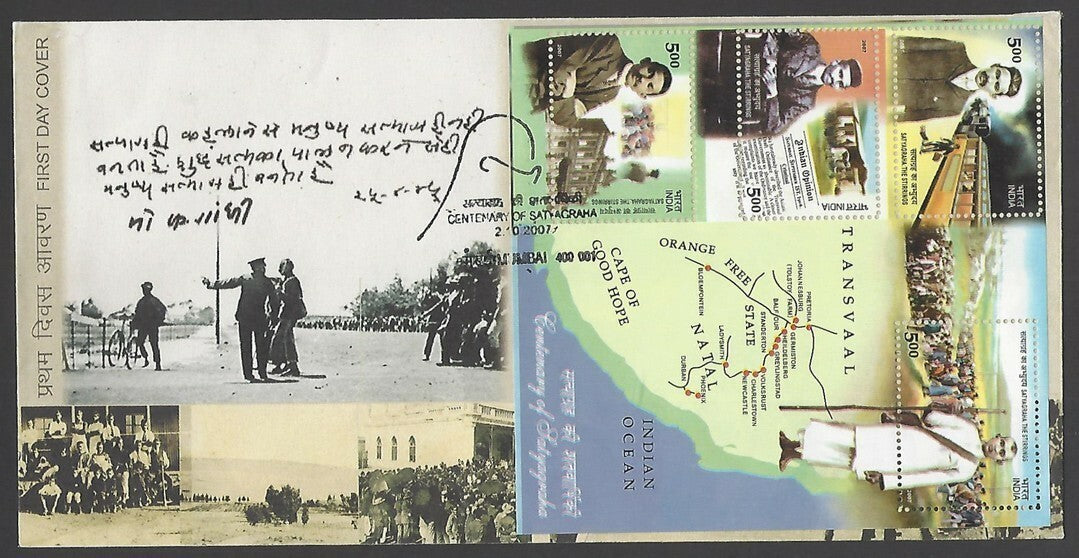 प्रथम दिवस आवरण FIRST DAY COVER
सत्याग्रही कहलाने से मनुष्य सत्याग्रही नहीं
बनता है शुद्ध सत्यका पालन करने से ही
मनुष्य सत्याग्रही बनता है
मो क गांधी
CENTENARY OF SATYAGRAHA
2.10.2007
MUMBAI 400 001
2007
5.00
भारत INDIA
सत्याग्रह का अभ्युदय SATYAGRAHA THE STIRRINGS
2007
सत्याग्रह का अभ्युदय
SATYAGRAHA THE STIRRINGS
Indian Opinion
5.00
भारत INDIA
5.00
सत्याग्रह का अभ्युदय
SATYAGRAHA THE STIRRINGS
भारत
INDIA
CAPE OF
GOOD HOPE
ORANGE FREE STATE
TRANSVAAL
NATAL
INDIAN
OCEAN
BLOEMFONTEIN
JOHANNESBURG
(TOLSTOY FARM)
PRETORIA
BALFOUR
GERMISTON
HEIDELBERG
GREYLINGSTAD
STANDERTON
VOLKSRUST
CHARLESTOWN
NEWCASTLE
LADYSMITH
DURBAN
PHOENIX
सत्याग्रह का अभ्युदय SATYAGRAHA THE STIRRINGS
5.00
2007
भारत
INDIA
सत्याग्रह की शताब्दी
Centenary of Satyagraha